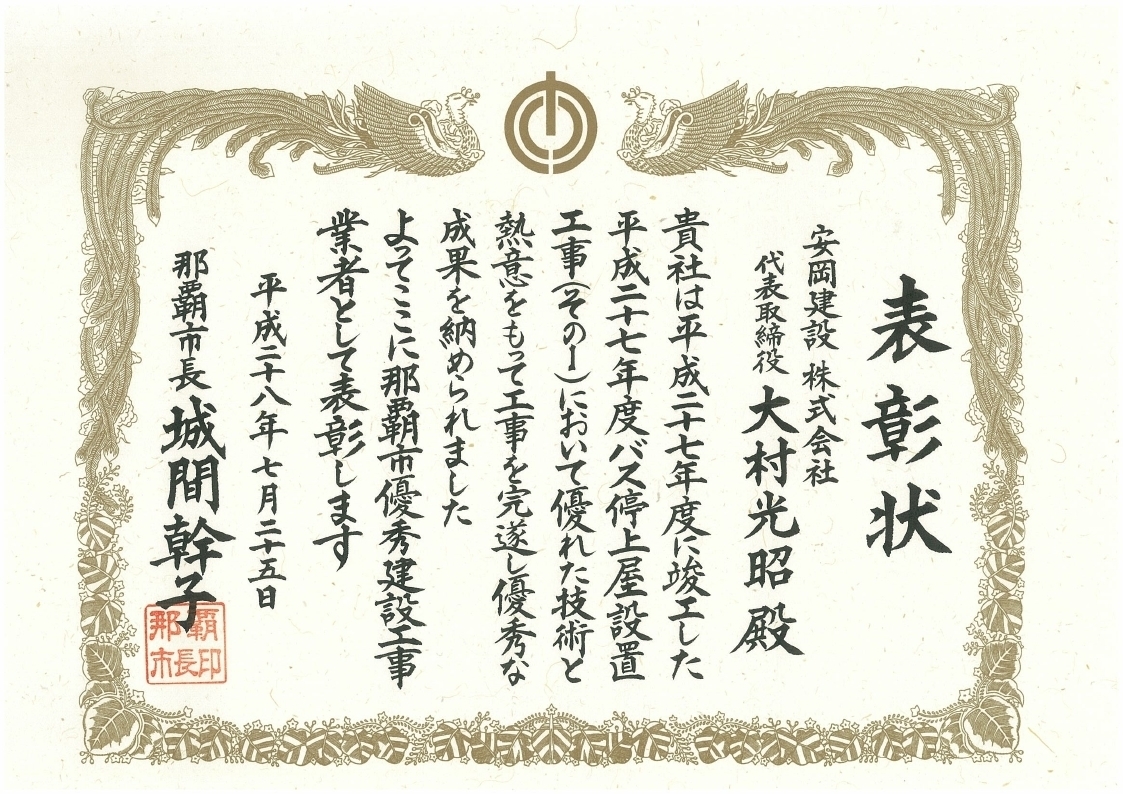 表彰状
安岡建設 株式会社
代表取締役 大村光昭 殿
貴社は平成二十七年度に竣工した
平成二十七年度バス停上屋設置
工事(その1)において優れた技術と
熱意をもって工事を完遂し優秀な
成果を納められました
よってここに那覇市優秀建設工事
業者として表彰します
平成二十八年七月二十五日
那覇市長 城間幹子
那覇市長印